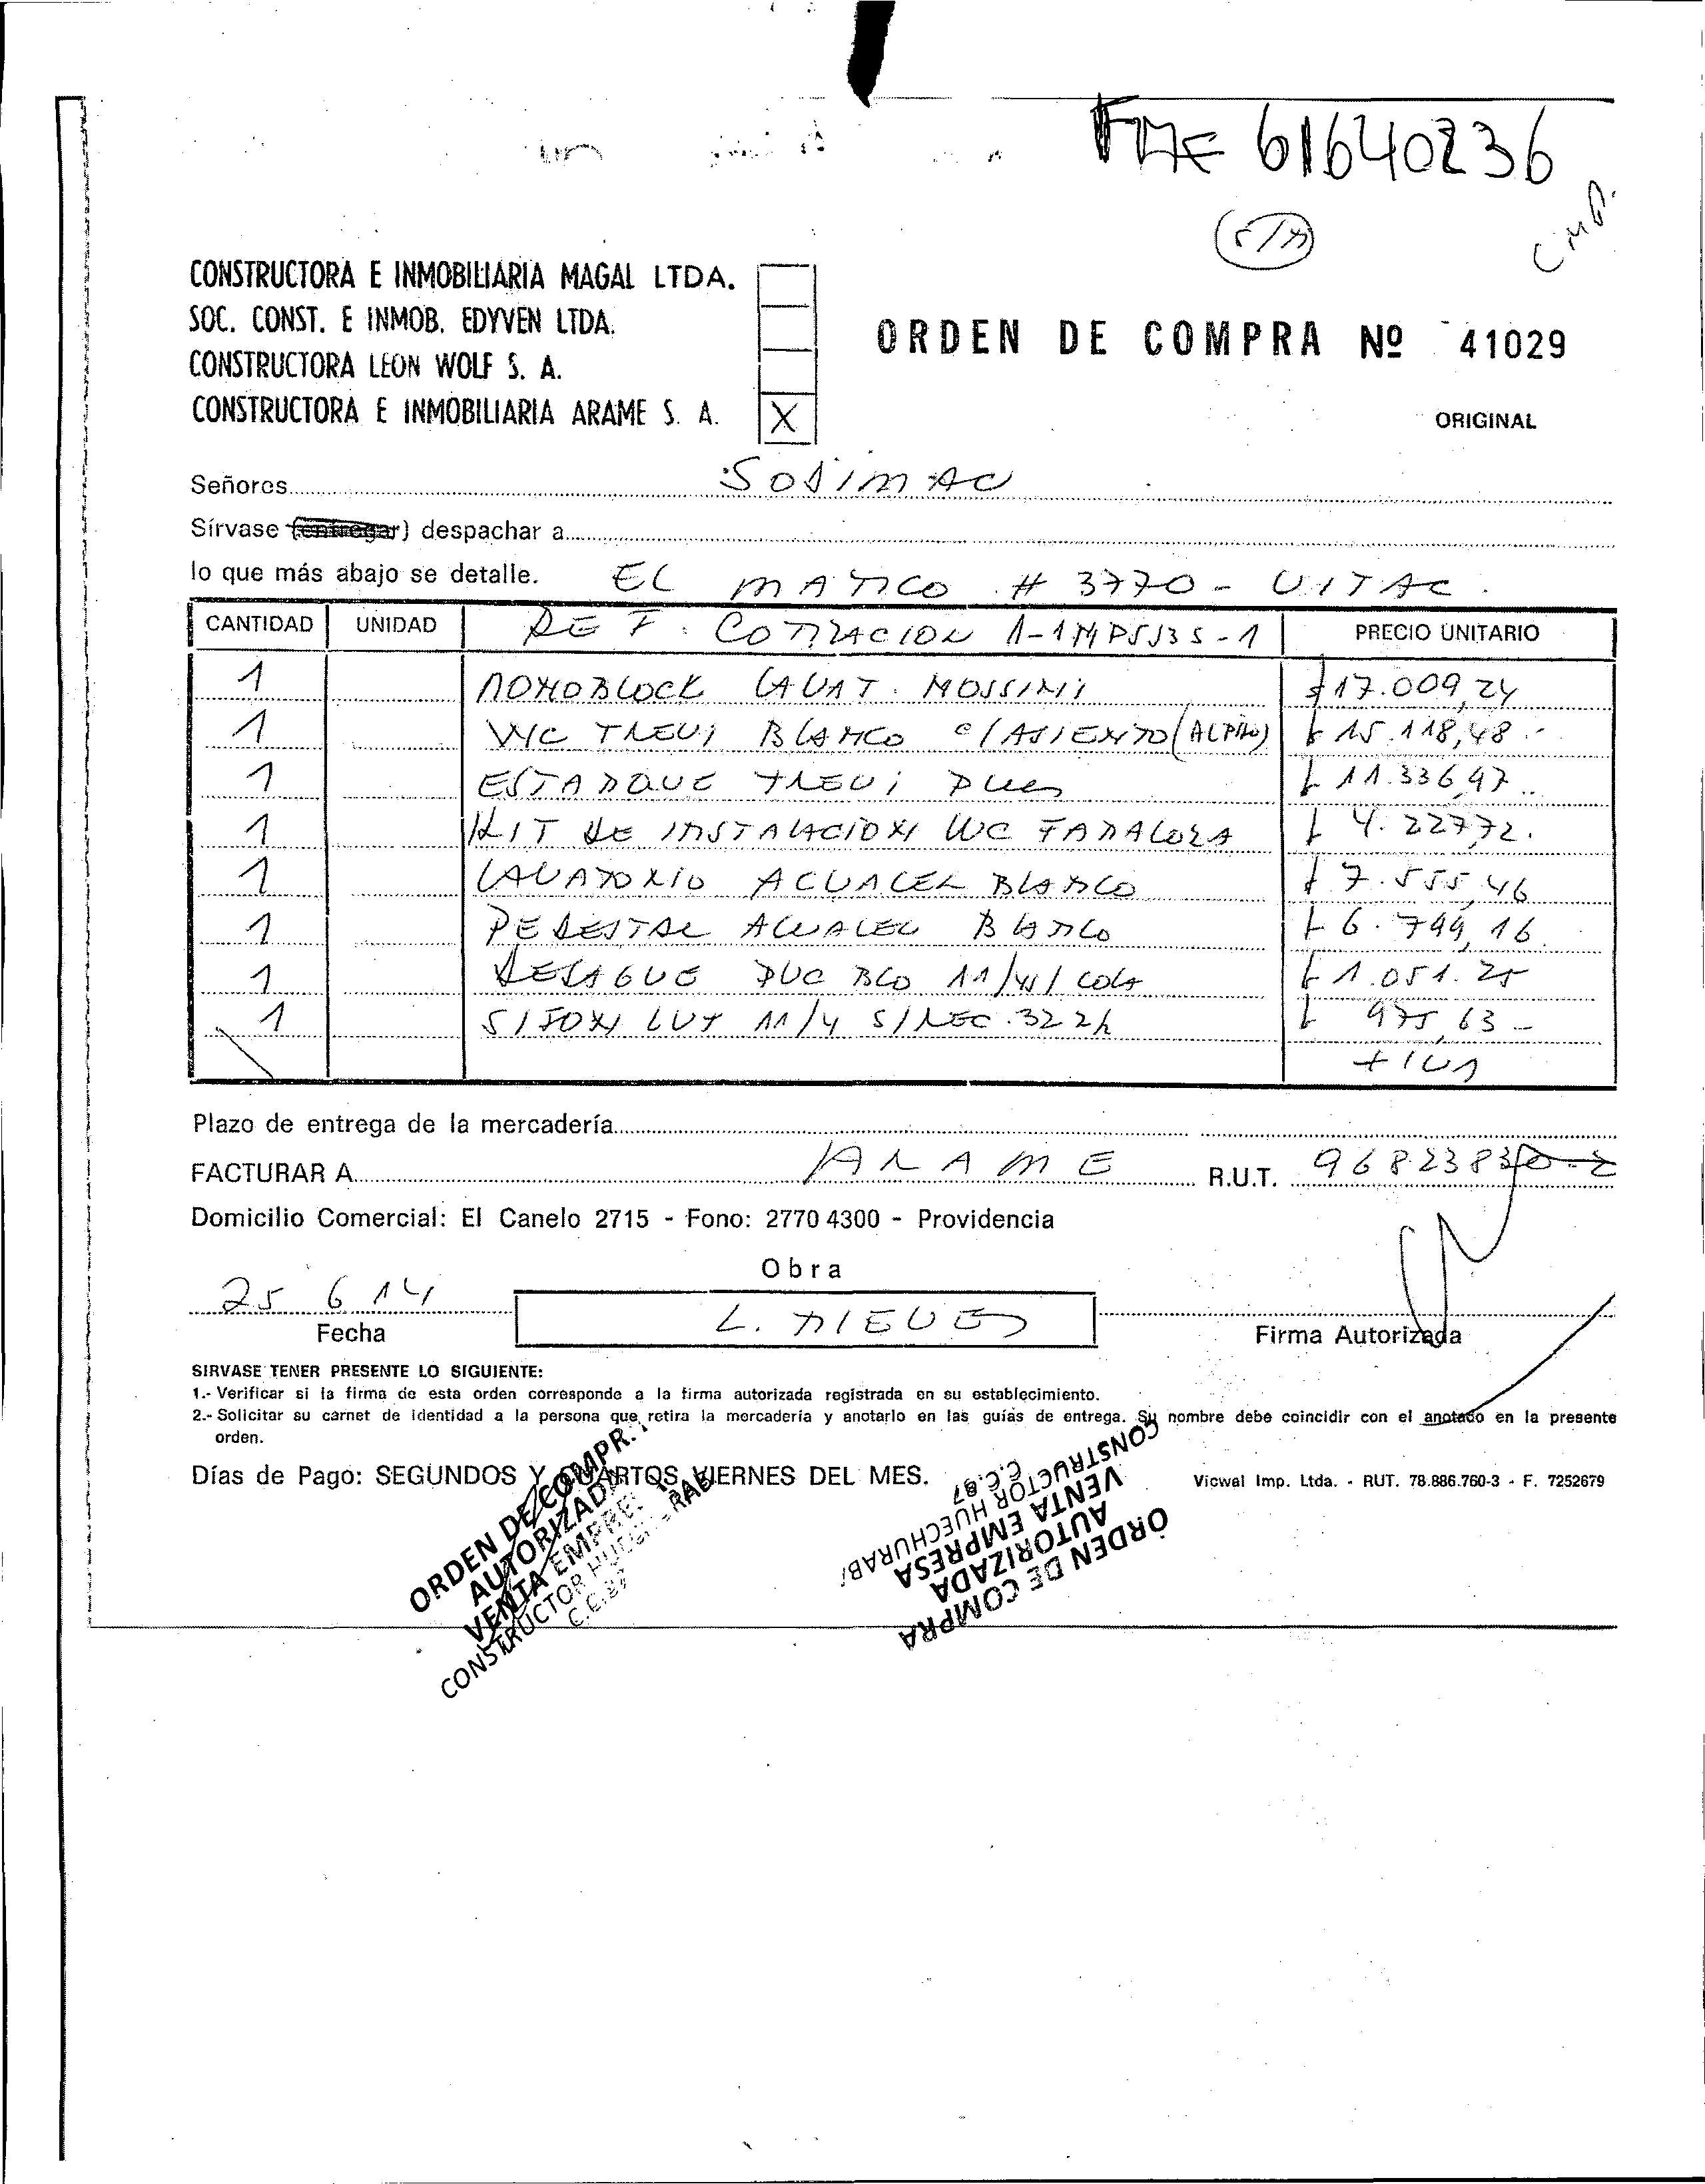 61640236
CONSTRUCTORA E INMOBILIARIA MAGAL LTDA.
SOC. CONST. E INMOB. EDYVEN LTDA.
CONSTRUCTORA LEON WOLF S. A.
CONSTRUCTORA E INMOBILIARIA ARAME S. A. X
ORDEN DE COMPRA Nº 41029
ORIGINAL
Señores SODIMAC
Sírvase (entregar) despachar a
lo que más abajo se detalle. EL MATICO # 3770 - VITAC.
CANTIDAD UNIDAD REF. COTIZACION PRECIO UNITARIO
1 MONOBLOCK LAVAT. MOSSINI $17.009,24
1 WC TREVI BLANCO C/ASIENTO (ALPINO) $ 15.118,48.-
1 ESTANQUE TREVI $ 11.336,97
1 KIT DE INSTALACION WC $ 4.227,72.
1 LAVATORIO ACUACEL BLANCO $ 7.555,46
1 PEDESTAL ACUACEL BLANCO $ 6.799,16
1 DESAGUE PVC BCO 11/4 $ 1.051.25
1 SIFON 11/4 S/REC. $ 975,63-
+ IVA
Plazo de entrega de la mercadería
FACTURAR A ARAME R.U.T. 96823830-2
Domicilio Comercial: El Canelo 2715 - Fono: 2770 4300 - Providencia
Obra
25 6 14 L. NIEVES
Fecha Firma Autorizada
SIRVASE TENER PRESENTE LO SIGUIENTE:
1.- Verificar si la firma de esta orden corresponde a la firma autorizada registrada en su establecimiento.
2.- Solicitar su carnet de identidad a la persona que retira la mercadería y anotarlo en las guías de entrega. Su nombre debe coincidir con el anotado en la presente
orden.
Días de Pago: SEGUNDOS Y CUARTOS VIERNES DEL MES.
Vicwal Imp. Ltda. - RUT. 78.886.760-3 - F. 7252679
ORDEN DE COMPR
AUTORIZADA
VENTA EMPRE
CONSTRUCTOR
C.C.87
ORDEN DE COMPRA
AUTORIZADA
VENTA EMPRESA
CONSTRUCTOR HUECHURABA
C.C.87